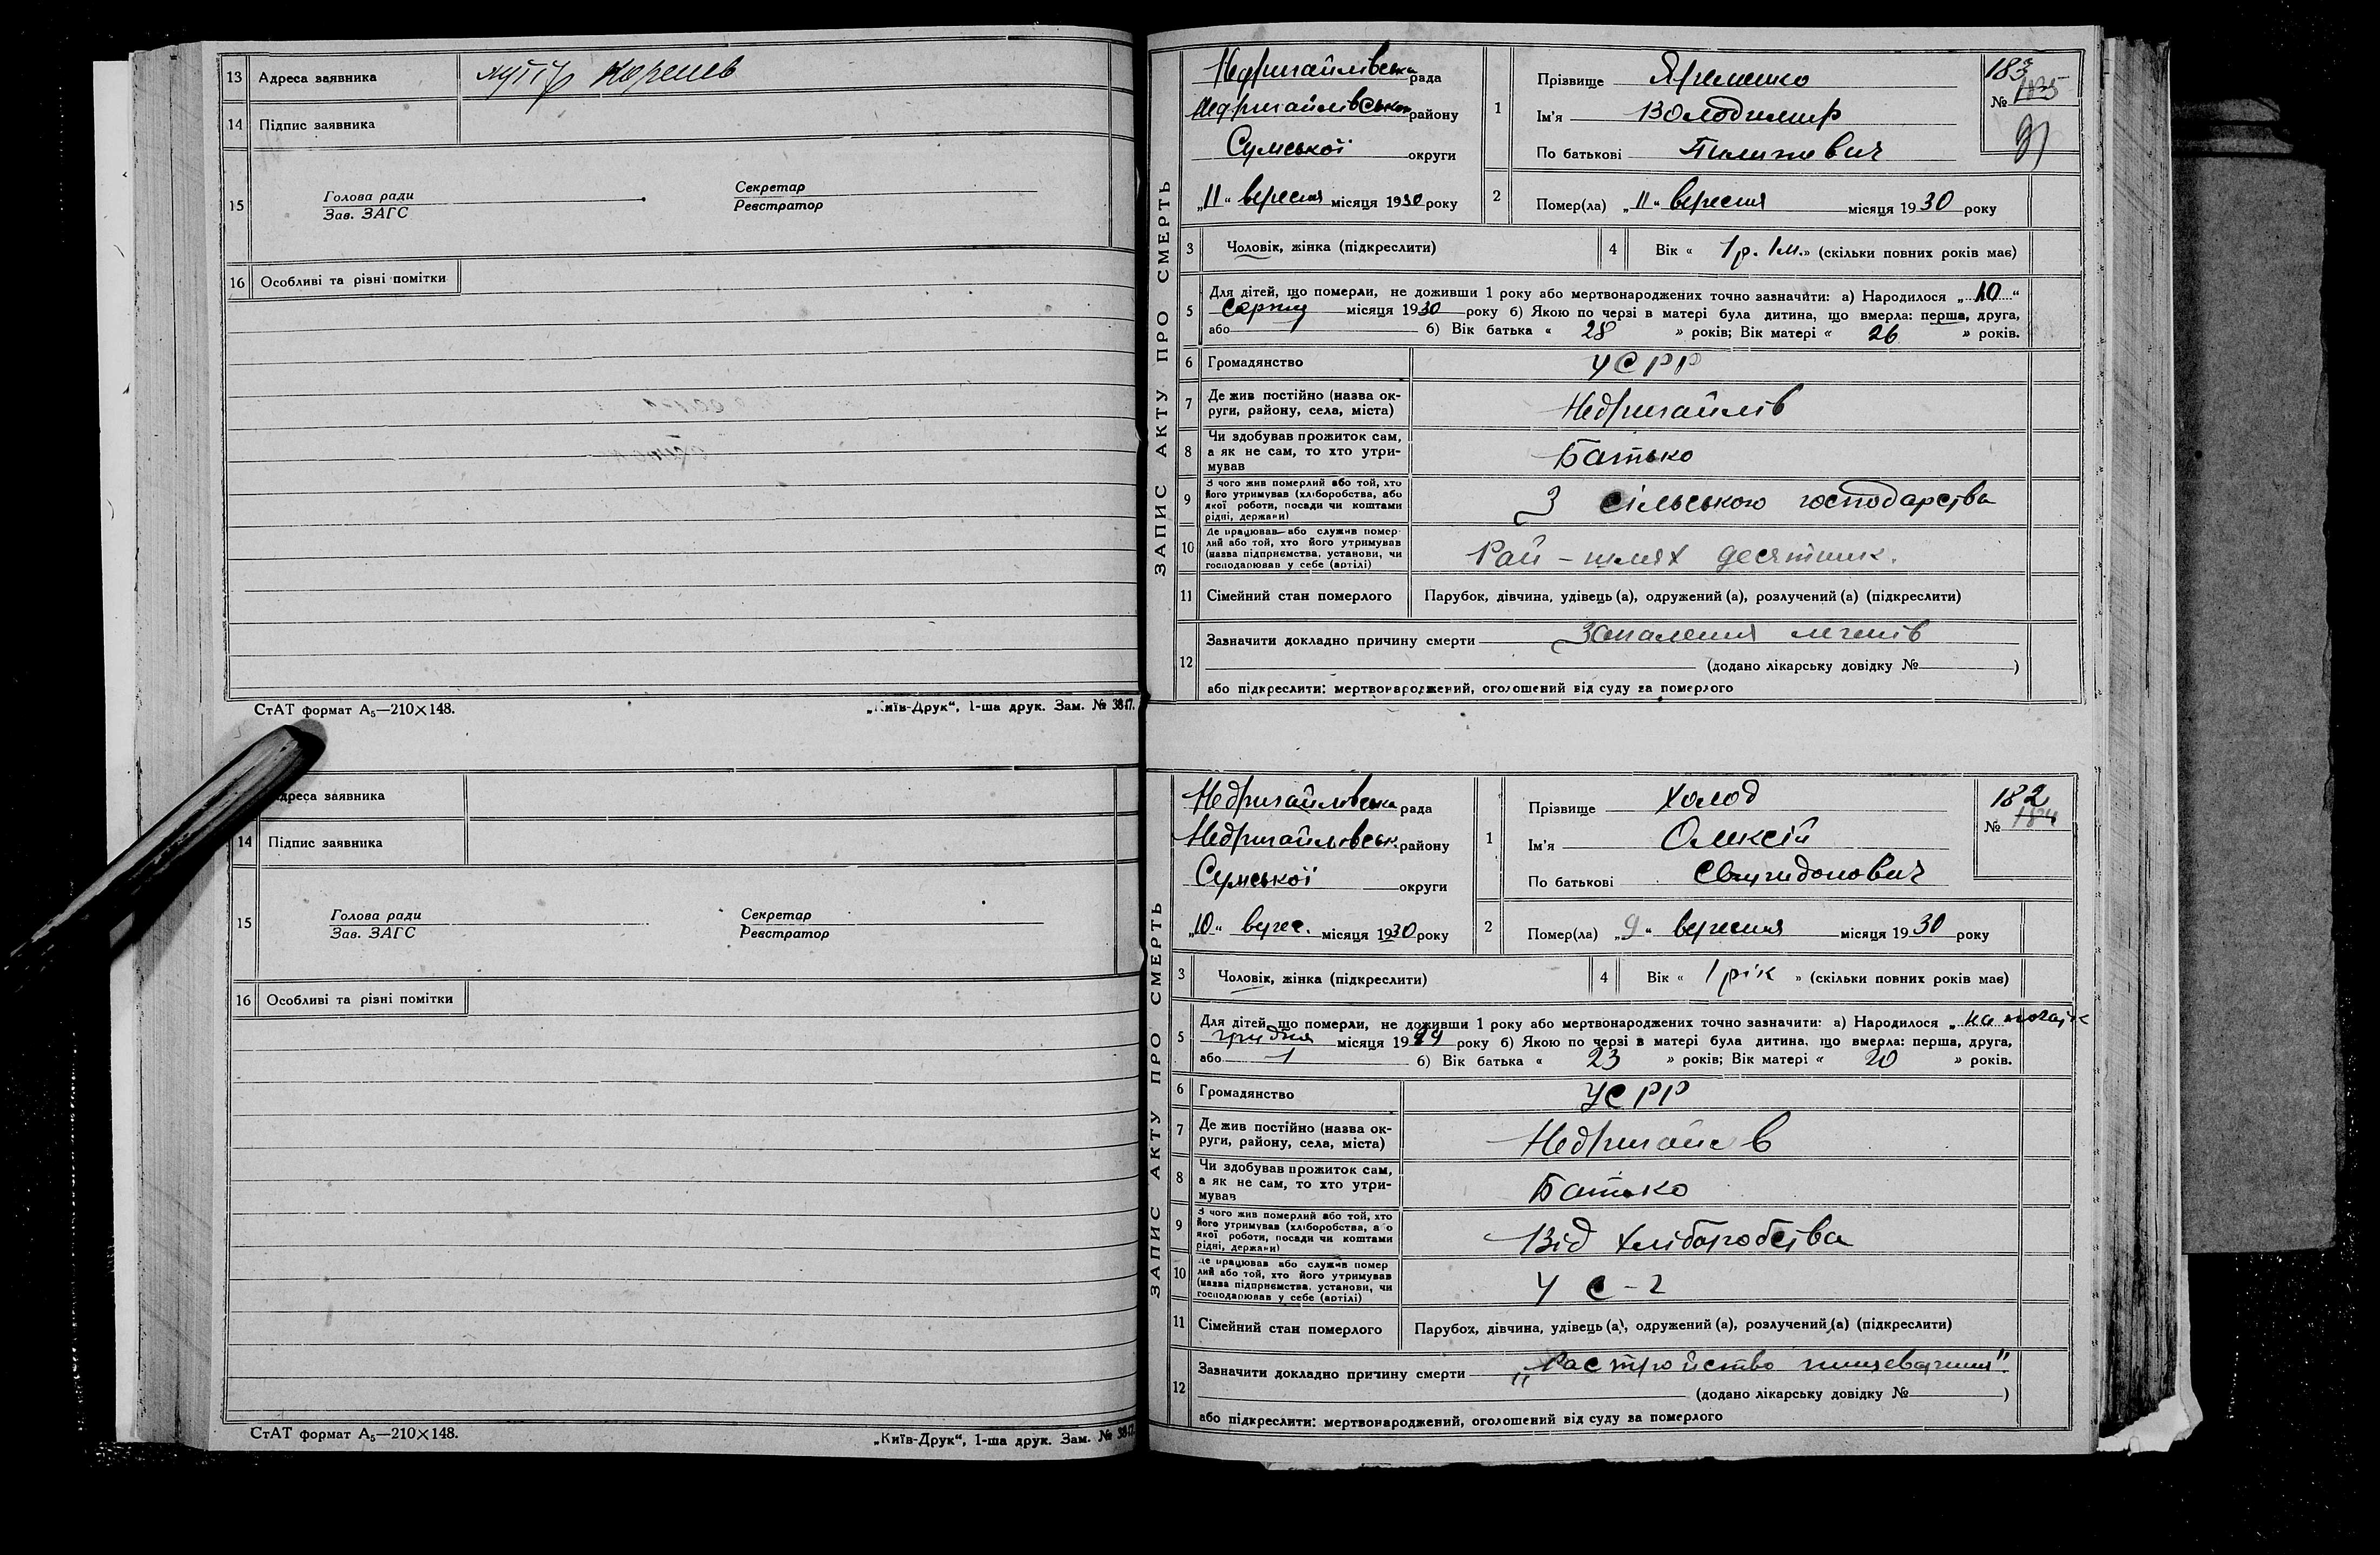 13 Адреса заявника хутір Коренев
14 Підпис заявника
15 Голова ради Секретар
Зав. ЗАГС Реєстратор
16 Особливі та різні помітки
СтАТ формат А₅—210×148. „Київ-Друк“, 1-ша друк. Зам. № 3817.
Адреса заявника
14 Підпис заявника
15 Голова ради Секретар
Зав. ЗАГС Реєстратор
16 Особливі та різні помітки
СтАТ формат А₅—210×148. „Київ-Друк“, 1-ша друк. Зам. № 3817.
ЗАПИС АКТУ ПРО СМЕРТЬ
Недригайлівська рада
Недригайлівськ району
Сумської округи
„11“ вересня місяця 1930 року
1 Прізвище Яременко
Ім'я Володимир
По батькові Пилипович
183
№ 185
91
2 Помер(ла) „11“ вересня місяця 1930 року
3 Чоловік, жінка (підкреслити) 4 Вік « 1 р. 1 м. » (скільки повних років має)
5 Для дітей, що померли, не доживши 1 року або мертвонароджених точно зазначити: а) Народилося „10“
Серпня місяця 1930 року б) Якою по черзі в матері була дитина, що вмерла: перша, друга,
або б) Вік батька « 28 » років; Вік матері « 26 » років.
6 Громадянство УСРР
7 Де жив постійно (назва ок-
руги, району, села, міста) Недригайлів
8 Чи здобував прожиток сам,
а як не сам, то хто утри-
мував Батько
9 З чого жив померлий або той, хто
його утримував (хліборобства, або
якої роботи, посади чи коштами
рідні, держави) З сільського господарства
10 Де працював або служив помер
лий або той, хто його утримував
(назва підприємства, установи, чи
господарював у себе (артілі) Рай-шлях десятник.
11 Сімейний стан померлого Парубок, дівчина, удівець (а), одружений (а), розлучений (а) (підкреслити)
12 Зазначити докладно причину смерти Запалення легенів
(додано лікарську довідку № )
або підкреслити: мертвонароджений, оголошений від суду за померлого
ЗАПИС АКТУ ПРО СМЕРТЬ
Недригайлівська рада
Недригайлівськ. району
Сумської округи
„10“ верес. місяця 1930 року
1 Прізвище Холод
Ім'я Олексій
По батькові Свиридонович
182
№ 184
2 Помер(ла) „9“ вересня місяця 1930 року
3 Чоловік, жінка (підкреслити) 4 Вік « 1 рік » (скільки повних років має)
5 Для дітей, що померли, не доживши 1 року або мертвонароджених точно зазначити: а) Народилося „на початк
грудня місяця 1929 року б) Якою по черзі в матері була дитина, що вмерла: перша, друга,
або 1 б) Вік батька « 23 » років; Вік матері « 20 » років.
6 Громадянство УСРР
7 Де жив постійно (назва ок-
руги, району, села, міста) Недригайлів
8 Чи здобував прожиток сам,
а як не сам, то хто утри-
мував Батько
9 З чого жив померлий або той, хто
його утримував (хліборобства, або
якої роботи, посади чи коштами
рідні, держави) Від хліборобства
10 Де працював або служив помер
лий або той, хто його утримував
(назва підприємства, установи, чи
господарював у себе (артілі) У С-г
11 Сімейний стан померлого Парубок, дівчина, удівець (а), одружений (а), розлучений (а) (підкреслити)
12 Зазначити докладно причину смерти „Растройство пищеварения"
(додано лікарську довідку № )
або підкреслити: мертвонароджений, оголошений від суду за померлого